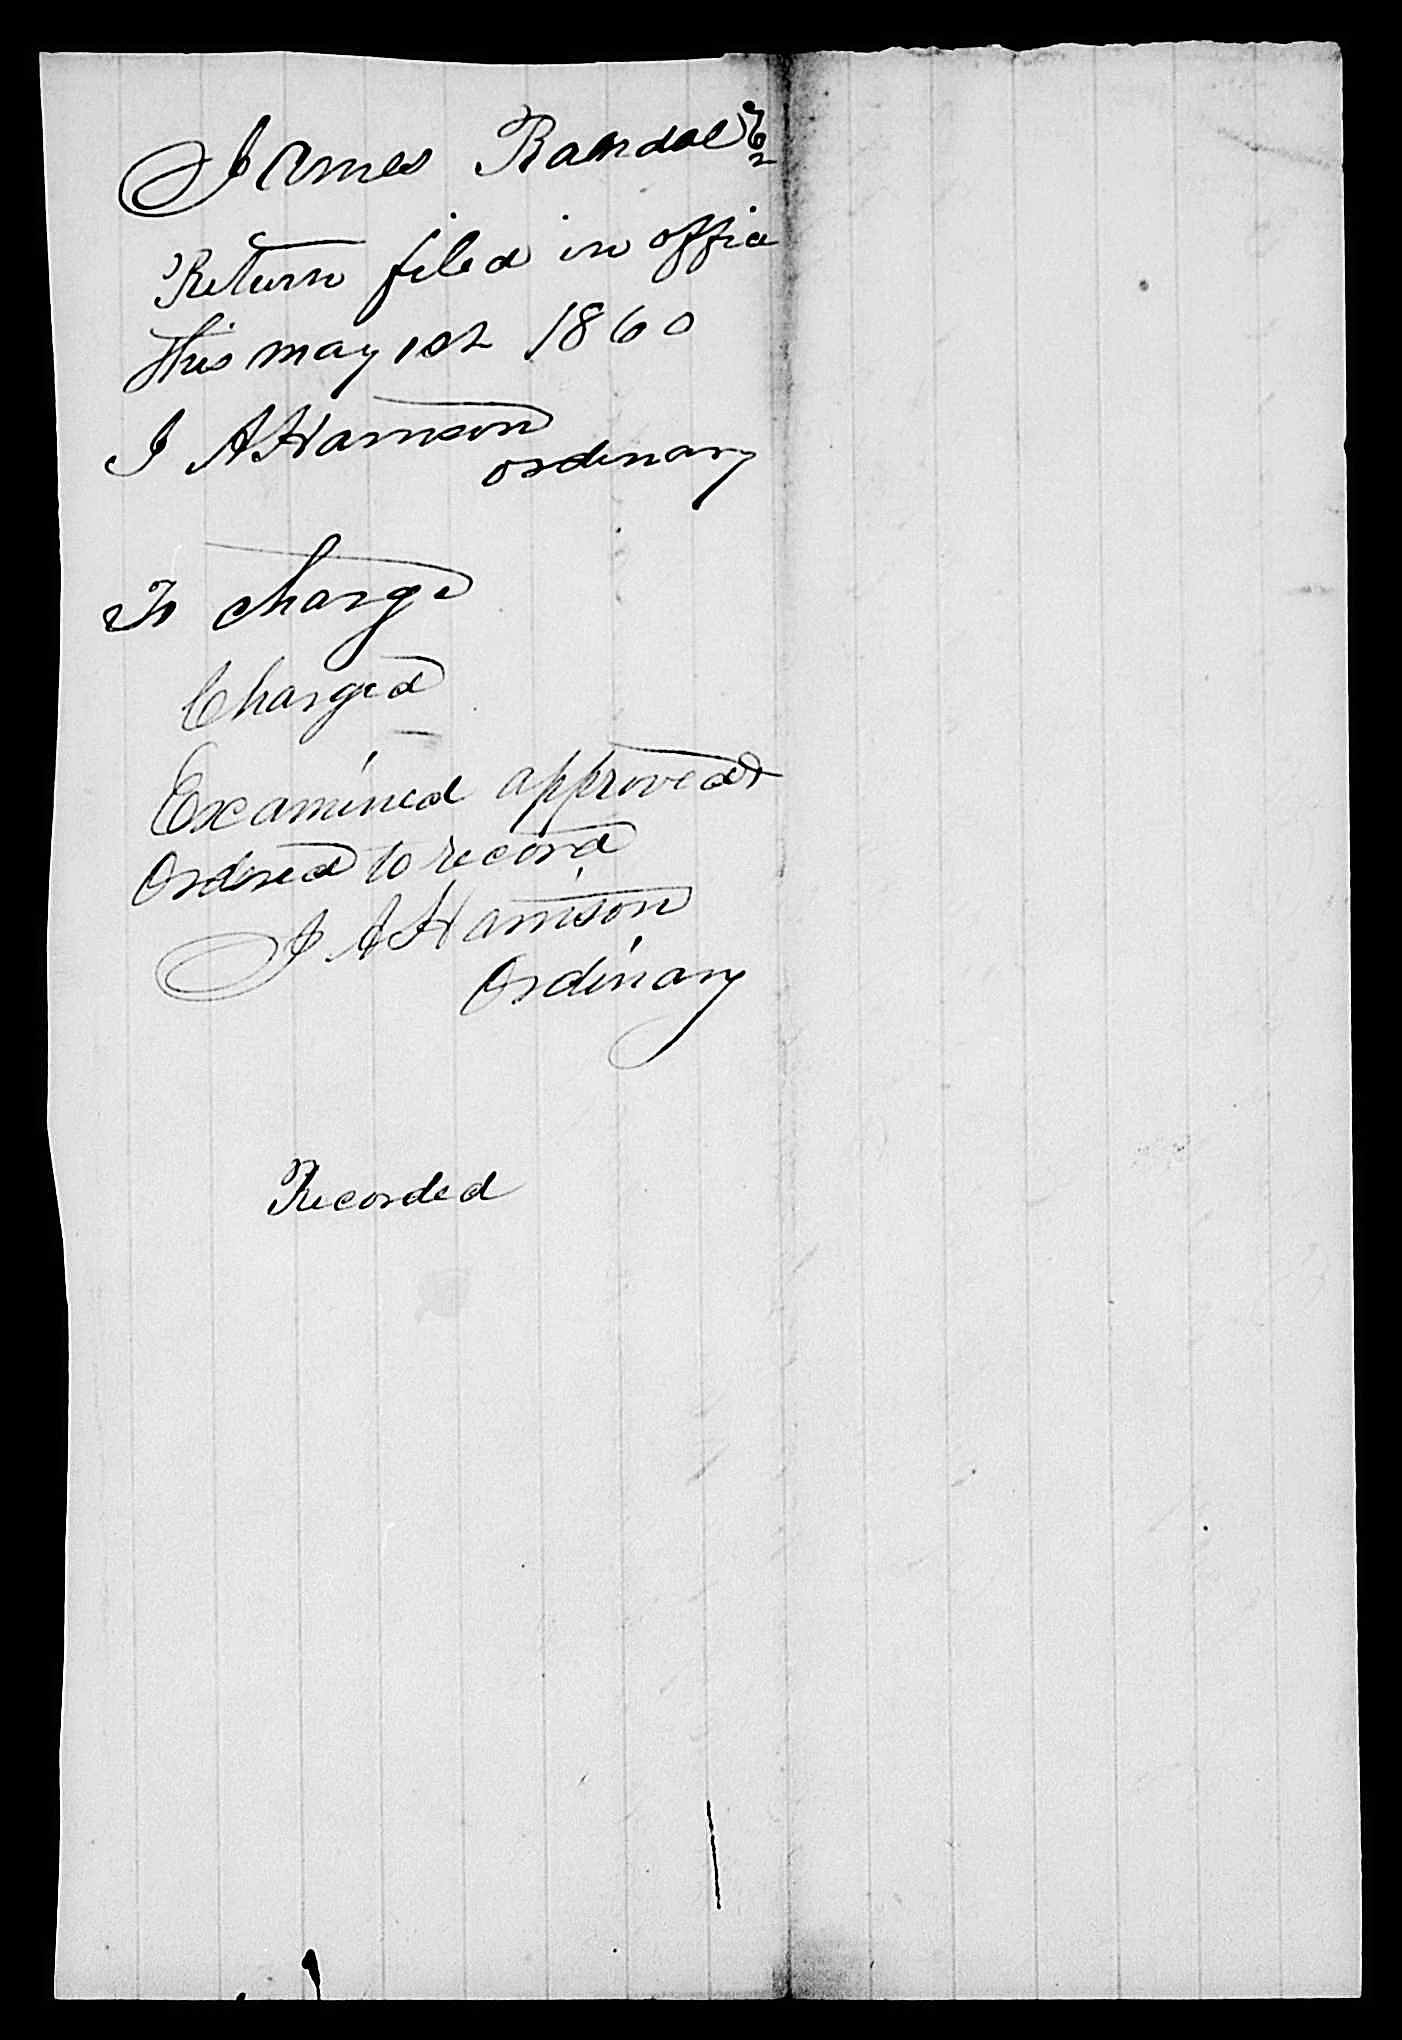 James Ransdale
Return filed in office
This may 1st 1860
J A Harrison
ordinary
To charge
Charged
Examined approved &
Ordered to record
J A Harrison
Ordinary
Recorded